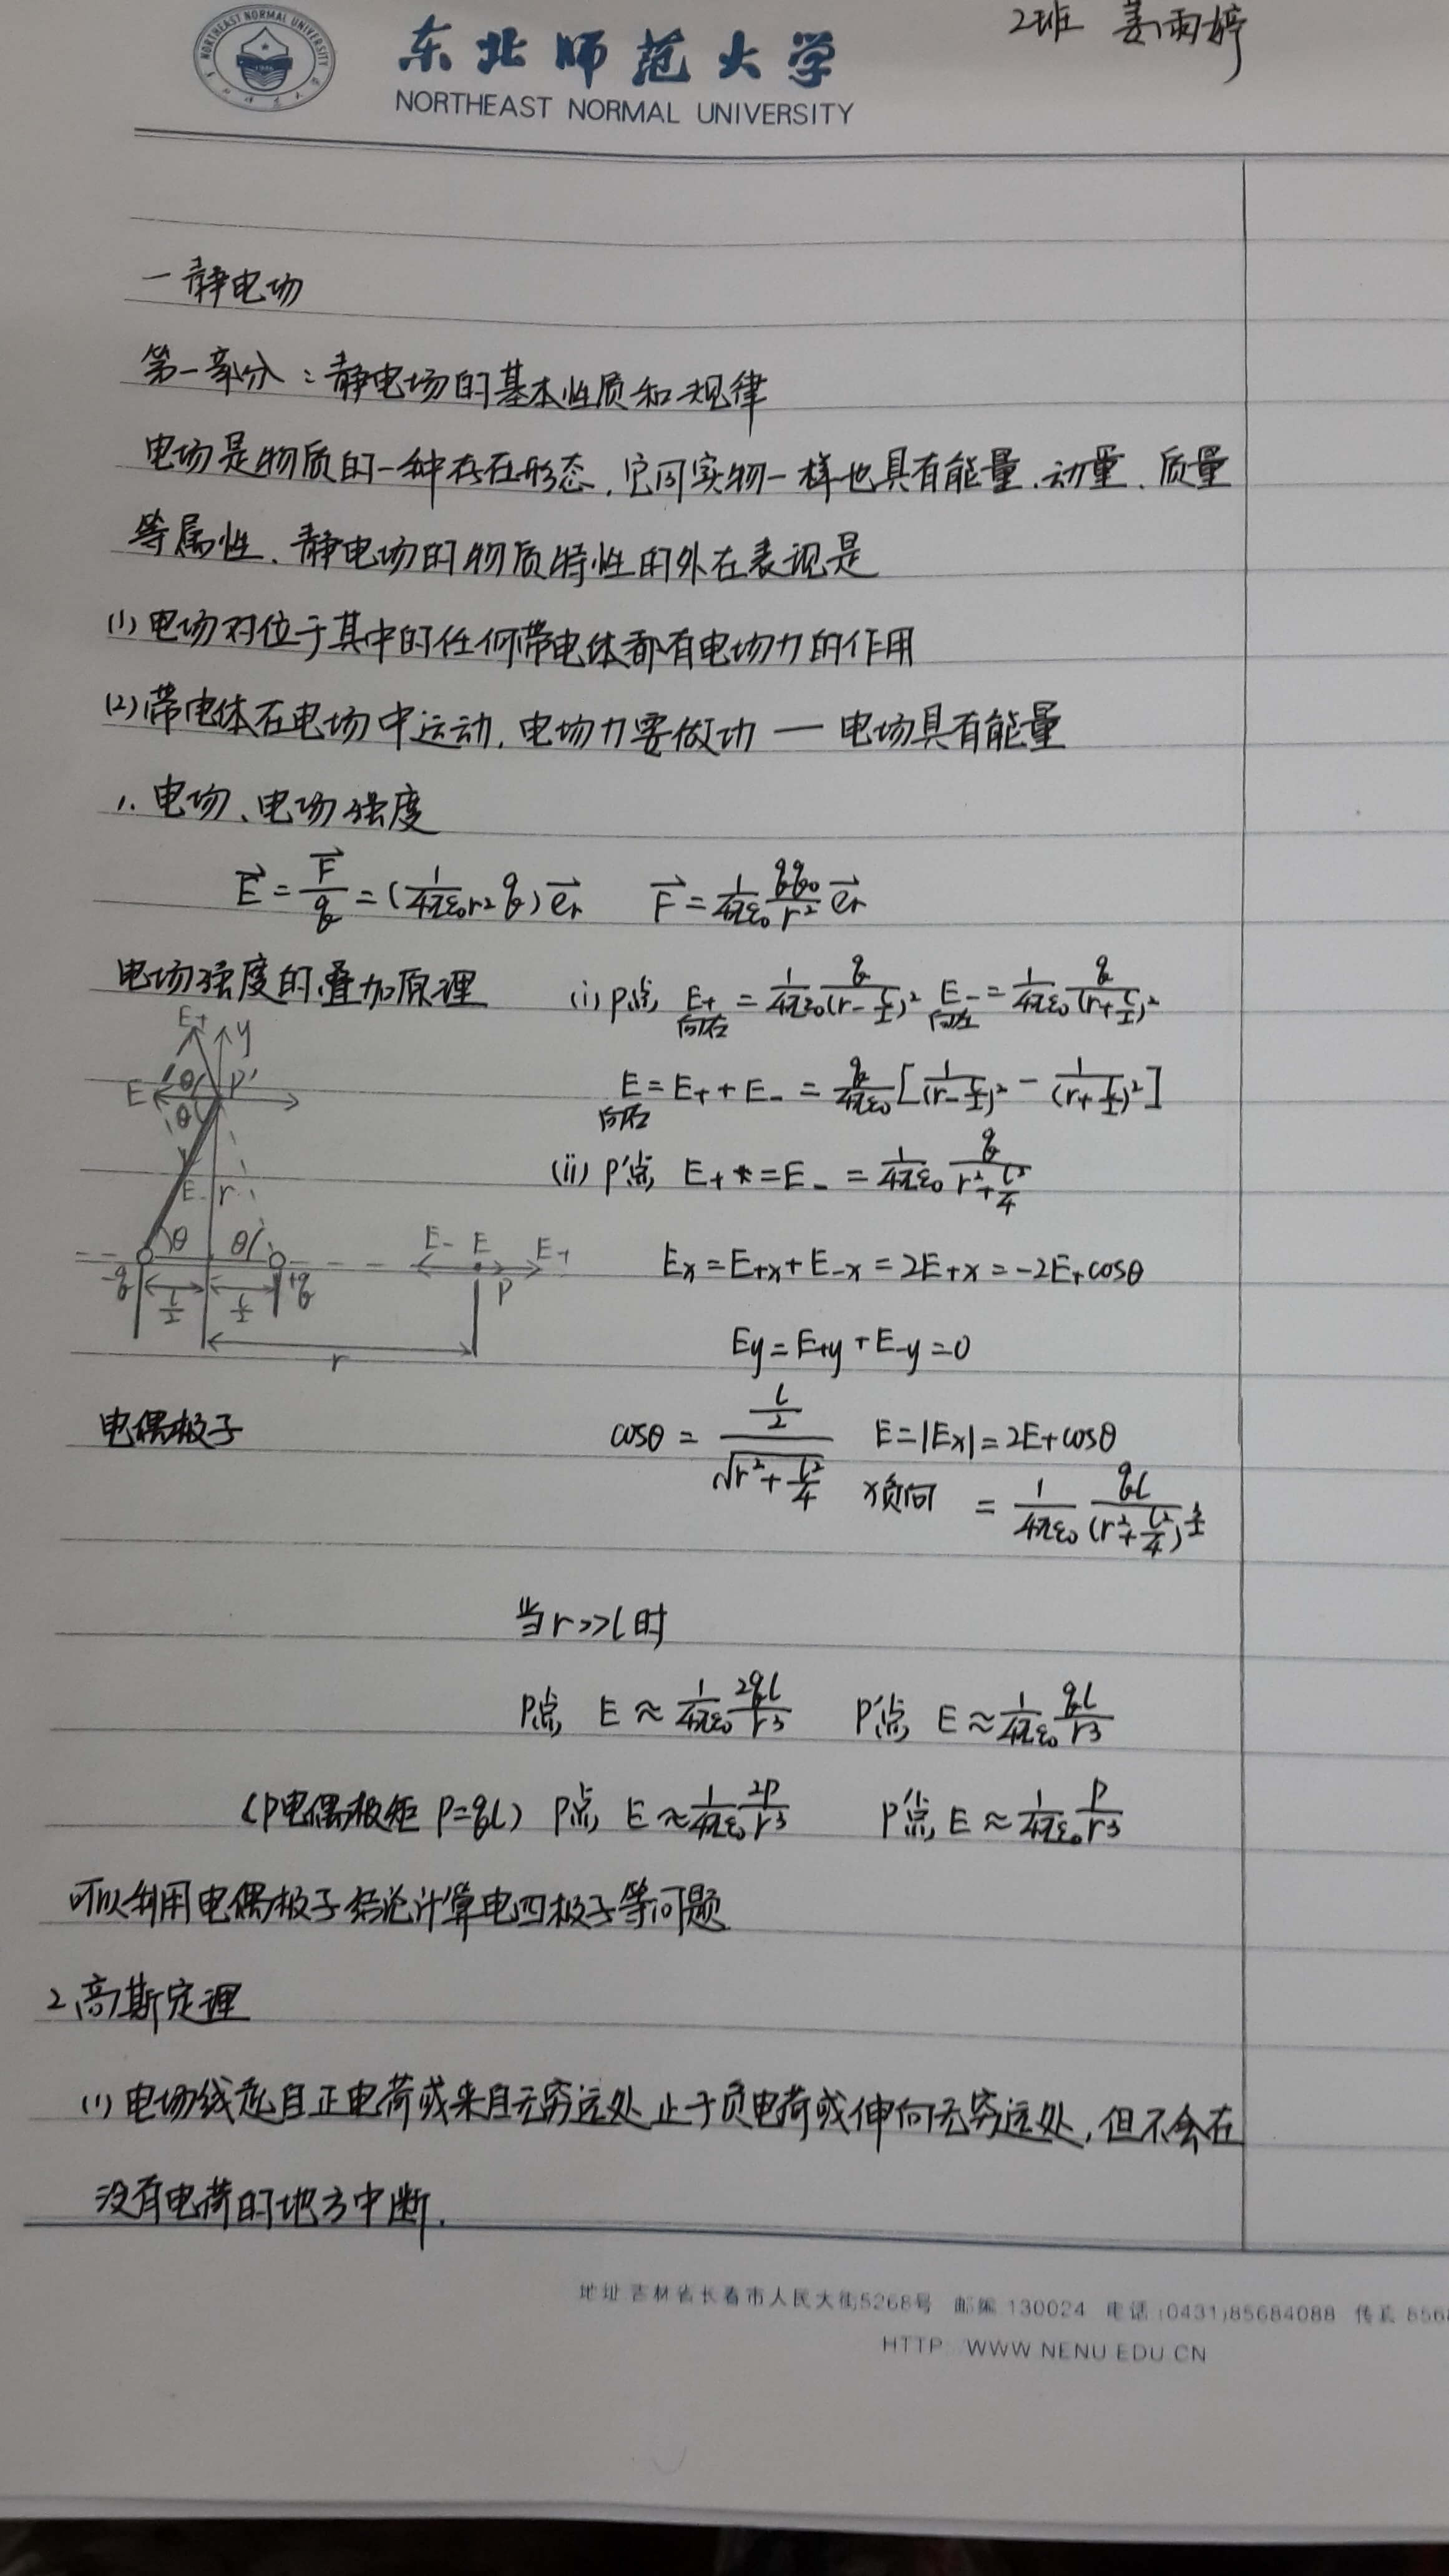 2班 姜雨婷
东北师范大学
NORTHEAST NORMAL UNIVERSITY
NORTHEAST NORMAL UNIVERSITY
一 静电场
第一部分：静电场的基本性质和规律
电场是物质的一种存在形态，它同实物一样也具有能量、动量、质量
等属性、静电场的物质特性的外在表现是
(1) 电场对位于其中的任何带电体都有电场力的作用
(2) 带电体在电场中运动，电场力要做功 — 电场具有能量
1. 电场、电场强度
E⃗ = F⃗/q = (1/4πε₀r² q) e⃗r  F⃗ = 1/4πε₀ qq₀/r² e⃗r
电场强度的叠加原理 (i) P点 E+ = 1/4πε₀ q/(r-l/2)² E- = 1/4πε₀ q/(r+l/2)²
向右 向左
E = E+ + E- = q/4πε₀ [1/(r-l/2)² - 1/(r+l/2)²]
向右
(ii) P'点 E+ = E- = 1/4πε₀ q/(r²+l²/4)
E+ y
E θ P'
θ
E- r
θ θ E- E E+
-q l/2 l/2 +q P
r
Ex = E+x + E-x = 2E+x = -2E+cosθ
Ey = E+y + E-y = 0
电偶极子 cosθ = (l/2)/√(r²+l²/4) E = |Ex| = 2E+cosθ
x负向 = 1/4πε₀ ql/(r²+l²/4)^(3/2)
当r>>l时
P点 E ≈ 1/4πε₀ 2ql/r³ P'点 E ≈ 1/4πε₀ ql/r³
(P电偶极矩 P=ql) P点 E ≈ 1/4πε₀ 2P/r³ P'点 E ≈ 1/4πε₀ P/r³
可以利用电偶极子结论计算电四极子等问题
2、高斯定理
(1) 电场线起自正电荷或来自无穷远处止于负电荷或伸向无穷远处，但不会在
没有电荷的地方中断.
地址 吉林省长春市人民大街5268号 邮编 130024 电话 (0431)85684088 传真 8568
HTTP WWW NENU EDU CN